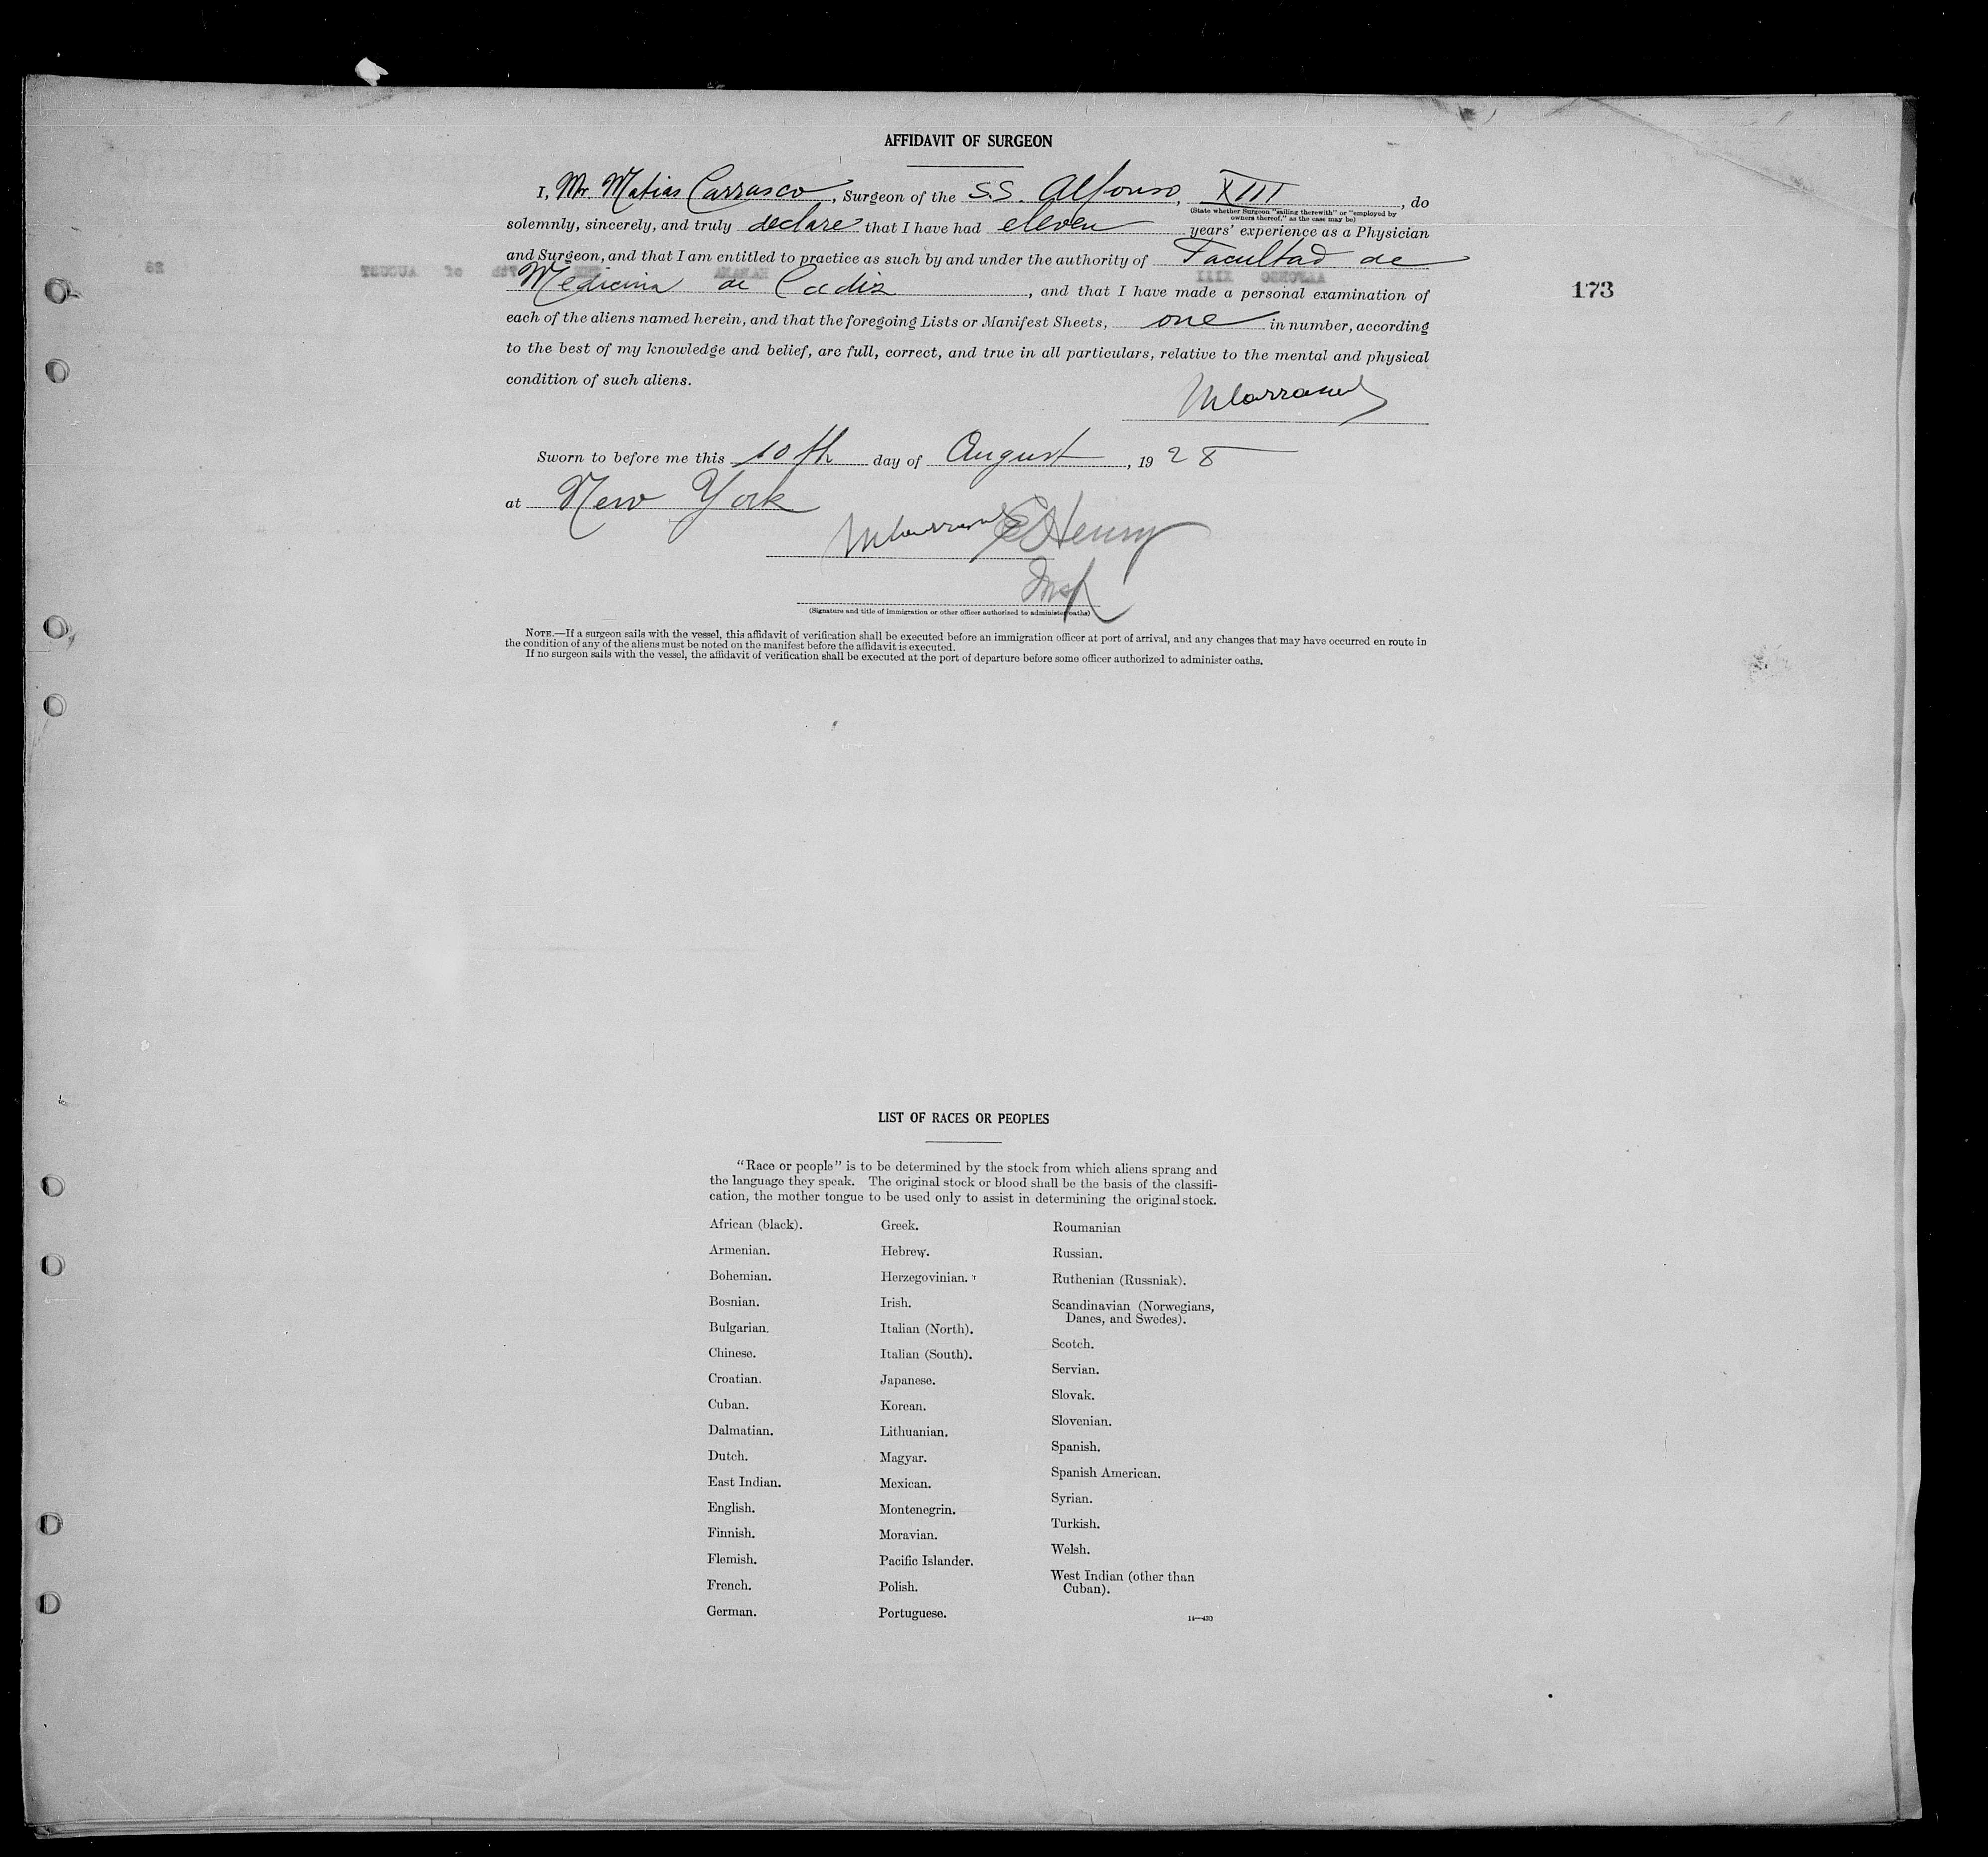 AFFIDAVIT OF SURGEON
I, Mr. Matias Carrasco, Surgeon of the S.S. Alfonso, XIII, do
(State whether Surgeon "sailing therewith" or "employed by
owners thereof," as the case may be)
solemnly, sincerely, and truly declare that I have had eleven years' experience as a Physician
and Surgeon, and that I am entitled to practice as such by and under the authority of Facultad de
Medicina de Cadiz, and that I have made a personal examination of
173
each of the aliens named herein, and that the foregoing Lists or Manifest Sheets, one in number, according
to the best of my knowledge and belief, are full, correct, and true in all particulars, relative to the mental and physical
condition of such aliens.
MCarrasco
Sworn to before me this 10th day of August, 1928
at New York
MCarrasco Henry
Insp
(Signature and title of immigration or other officer authorized to administer oaths)
NOTE.—If a surgeon sails with the vessel, this affidavit of verification shall be executed before an immigration officer at port of arrival, and any changes that may have occurred en route in
the condition of any of the aliens must be noted on the manifest before the affidavit is executed.
If no surgeon sails with the vessel, the affidavit of verification shall be executed at the port of departure before some officer authorized to administer oaths.
LIST OF RACES OR PEOPLES
"Race or people" is to be determined by the stock from which aliens sprang and
the language they speak. The original stock or blood shall be the basis of the classifi-
cation, the mother tongue to be used only to assist in determining the original stock.
African (black).
Armenian.
Bohemian.
Bosnian.
Bulgarian.
Chinese.
Croatian.
Cuban.
Dalmatian.
Dutch.
East Indian.
English.
Finnish.
Flemish.
French.
German.
Greek.
Hebrew.
Herzegovinian.
Irish.
Italian (North).
Italian (South).
Japanese.
Korean.
Lithuanian.
Magyar.
Mexican.
Montenegrin.
Moravian.
Pacific Islander.
Polish.
Portuguese.
Roumanian
Russian.
Ruthenian (Russniak).
Scandinavian (Norwegians,
Danes, and Swedes).
Scotch.
Servian.
Slovak.
Slovenian.
Spanish.
Spanish American.
Syrian.
Turkish.
Welsh.
West Indian (other than
Cuban).
14—430